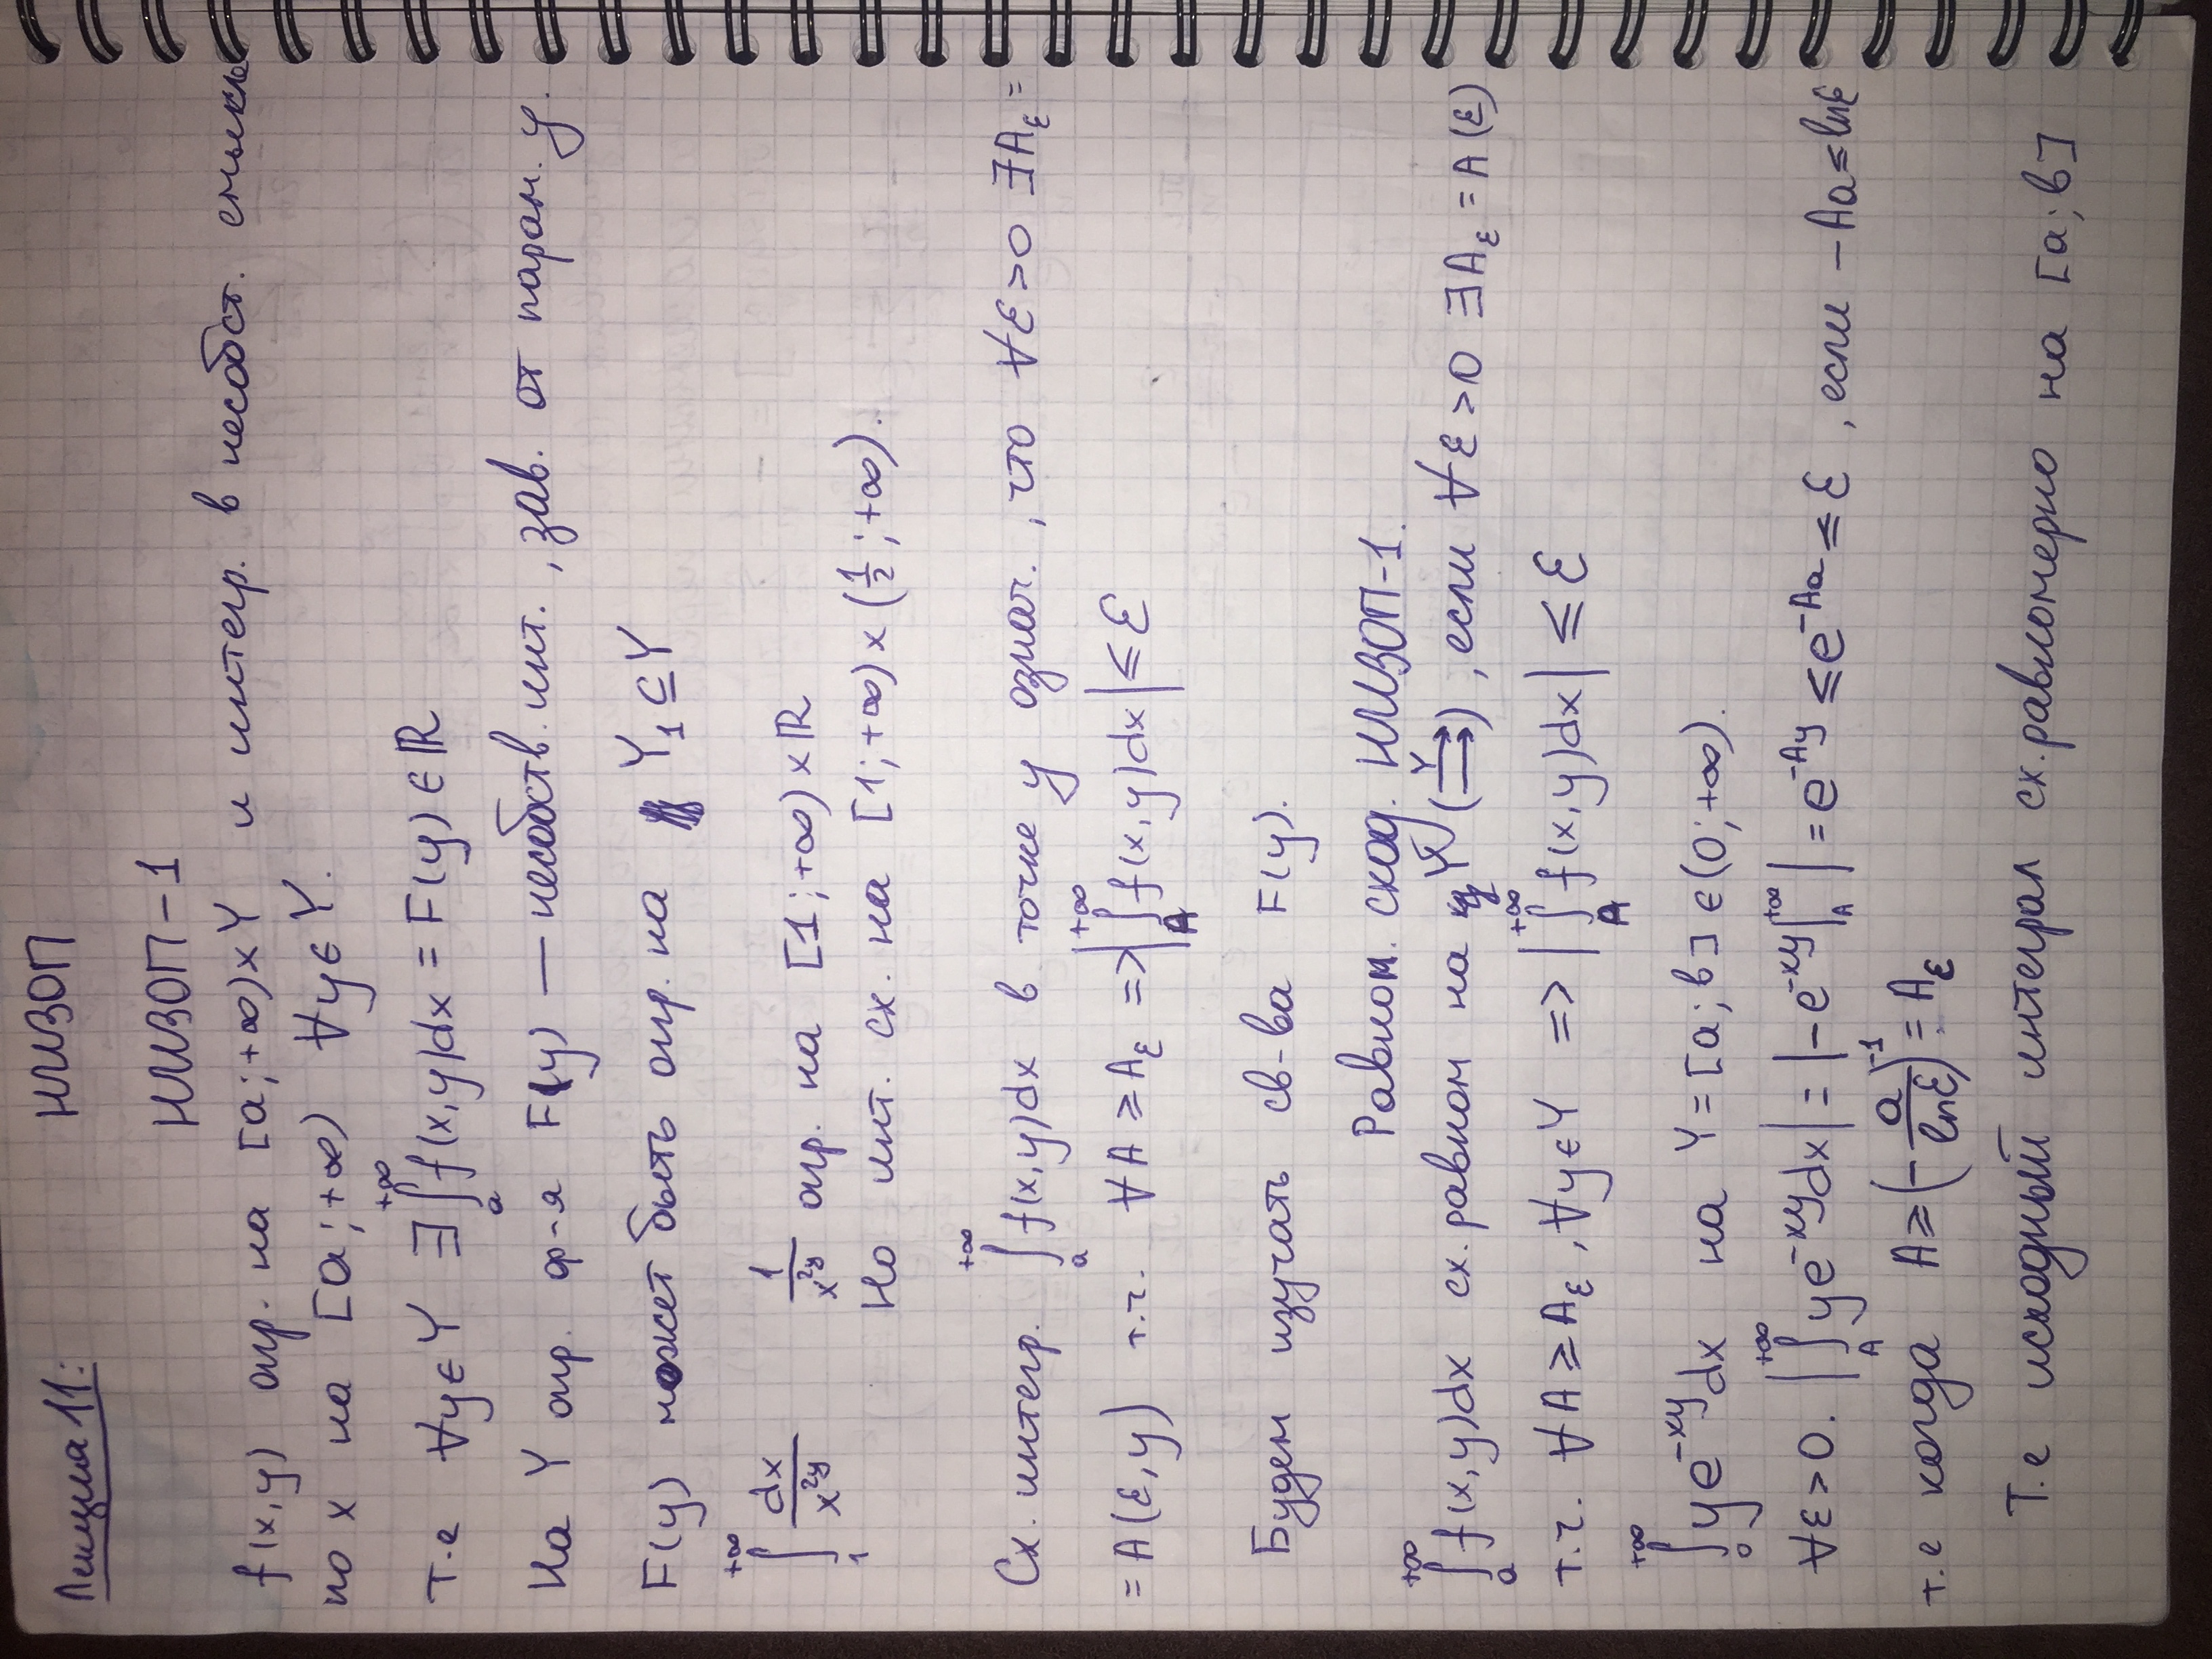 Лекция 11:
НИЗОП
НИЗОП-1
f(x,y) опр. на [a;+∞)×Y и интегр. в несобст. смысле
по x на [a;+∞) ∀y∈Y.
т.е ∀y∈Y ∃∫_a^{+∞} f(x,y)dx = F(y)∈ℝ
На Y опр. ф-я F(y) — несобств. инт., зав. от парам. y.
F(y) может быть опр. на Y₁⊆Y
∫_1^{+∞} dx/x^{2y} 1/x^{2y} опр. на [1;+∞)×ℝ
Но инт. сх. на [1;+∞)×(1/2;+∞).
Сх. интегр. ∫_a^{+∞} f(x,y)dx в точке y означ., что ∀ε>0 ∃A_ε=
=A(ε,y) т.ч. ∀A≥A_ε => |∫_A^{+∞} f(x,y)dx|≤ε
Будем изучать св-ва F(y).
Равном. сход. НИЗОП-1.
∫_a^{+∞} f(x,y)dx сх. равном на Y (⇉^Y), если ∀ε>0 ∃A_ε=A(ε)
т.ч. ∀A≥A_ε, ∀y∈Y => |∫_A^{+∞} f(x,y)dx| ≤ ε
∫_0^{+∞} ye^{-xy}dx на Y=[a;b]∈(0;+∞).
∀ε>0. |∫_A^{+∞} ye^{-xy}dx| = |-e^{-xy}|_A^{+∞}| = e^{-Ay} ≤ e^{-Aa} ≤ ε, если -Aa≤lnε
т.е когда A≥(-a/lnε)^{-1} = A_ε
Т.е исходный интеграл сх. равномерно на [a;b]